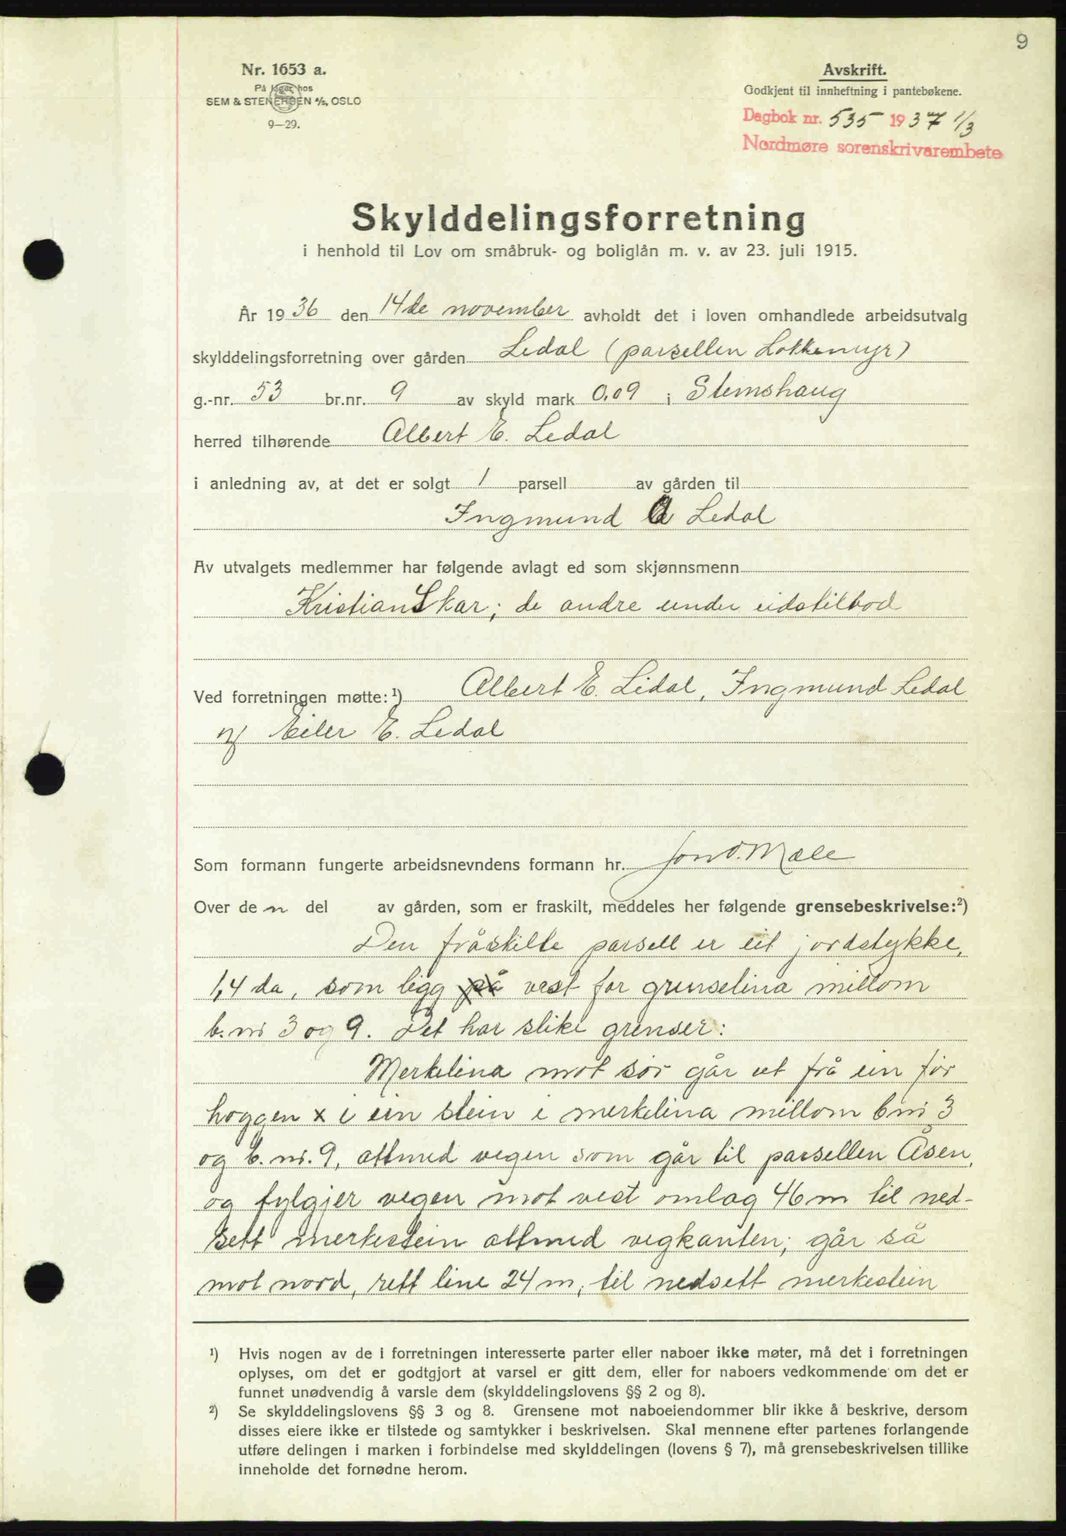 9
Nr. 1653 a.
På lager hos
SEM & STENERSEN A/S, OSLO
9—29.
Avskrift.
Godkjent til innheftning i pantebøkene.
Dagbok nr. 535 1937 1/3
Nordmøre sorenskrivarembete
Skylddelingsforretning
i henhold til Lov om småbruk- og boliglån m. v. av 23. juli 1915.
År 1936 den 14de november avholdt det i loven omhandlede arbeidsutvalg
skylddelingsforretning over gården Ledal (parsellen Lokkemyr)
g.-nr. 53 br.nr. 9 av skyld mark 0,09 i Stemshaug
herred tilhørende Albert E. Ledal
i anledning av, at det er solgt 1 parsell av gården til
Ingmund Ledal
Av utvalgets medlemmer har følgende avlagt ed som skjønnsmenn
Kristian Skar; de andre under eidstilbod
Ved forretningen møtte:¹) Albert E. Ledal, Ingmund Ledal
og Eiler E. Ledal
Som formann fungerte arbeidsnevndens formann hr. Jon O. Mæle
Over den del av gården, som er fraskilt, meddeles her følgende grensebeskrivelse:²)
Den fråskilte parsell er eit jordstykke,
1,4 da, som ligg på vest for grenselina millom
b.nr 3 og 9. Det har slike grenser:
Merkelina mot sør går ut frå ein før
hoggen x i ein stein i merkelina millom bnr 3
og b.nr. 9, attmed vegen som går til parsellen Åsen,
og fylgjer vegen mot vest omlag 46 m til ned-
sett merkestein attmed vegkanten; går så
mot nord, rett line 24 m, til nedsett merkestein
¹) Hvis nogen av de i forretningen interesserte parter eller naboer ikke møter, må det i forretningen
oplyses, om det er godtgjort at varsel er gitt dem, eller for naboers vedkommende om det er
funnet unødvendig å varsle dem (skylddelingslovens §§ 2 og 8).
²) Se skylddelingslovens §§ 3 og 8. Grensene mot naboeiendommer blir ikke å beskrive, dersom
disses eiere ikke er tilstede og samtykker i beskrivelsen. Skal mennene efter partenes forlangende
utføre delingen i marken i forbindelse med skylddelingen (lovens § 7), må grensebeskrivelsen tillike
inneholde det fornødne herom.